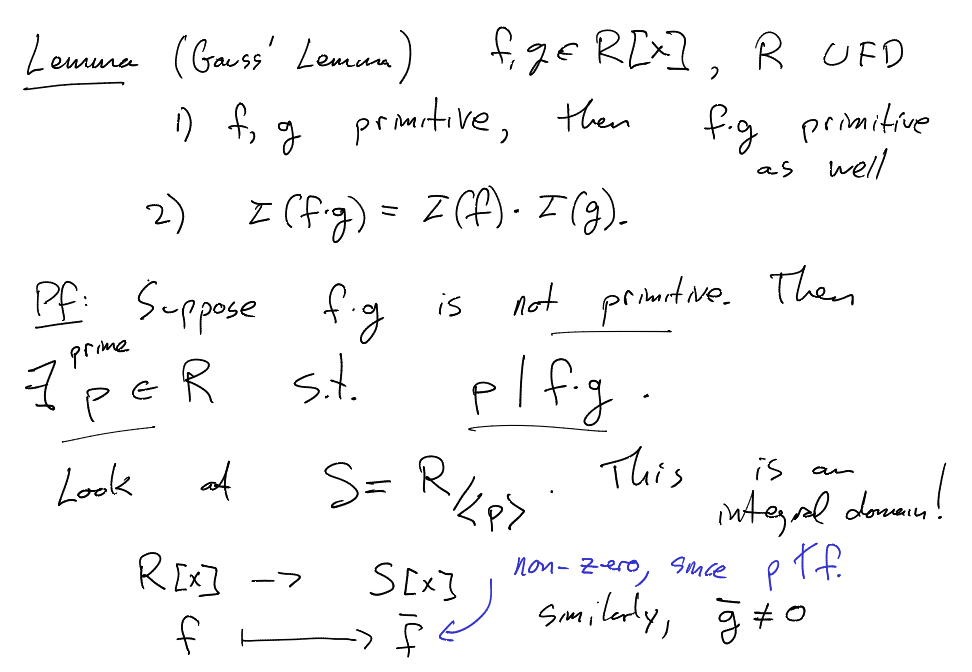 Lemma (Gauss' Lemma) f, g ∈ R[x], R UFD
1) f, g primitive, then f·g primitive
as well
2) I(f·g) = I(f)·I(g).
Pf: Suppose f·g is not primitive. Then
∃ prime p ∈ R s.t. p | f·g.
Look at S = R/<p>. This is an
integral domain!
R[x] -> S[x] non-zero, since p∤f.
f ⟼ f̄ similarly, ḡ ≠ 0